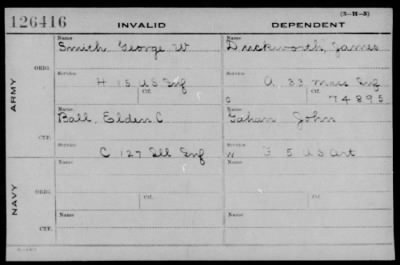 (3-H-3)
126416 INVALID DEPENDENT
Name Name
Smith George W Duckworth, James
ORIG. Service Service
H 15 US Inf A. 33 Mass Inf
Ctf. Ctf.
C 74895
ARMY
Name Name
Ball, Elden C Gahan John
CTF. Service Service
C 127 Ill Inf W F 5 US Art
Name Ctf. Name Ctf.
ORIG.
NAVY
Name Name
CTF.